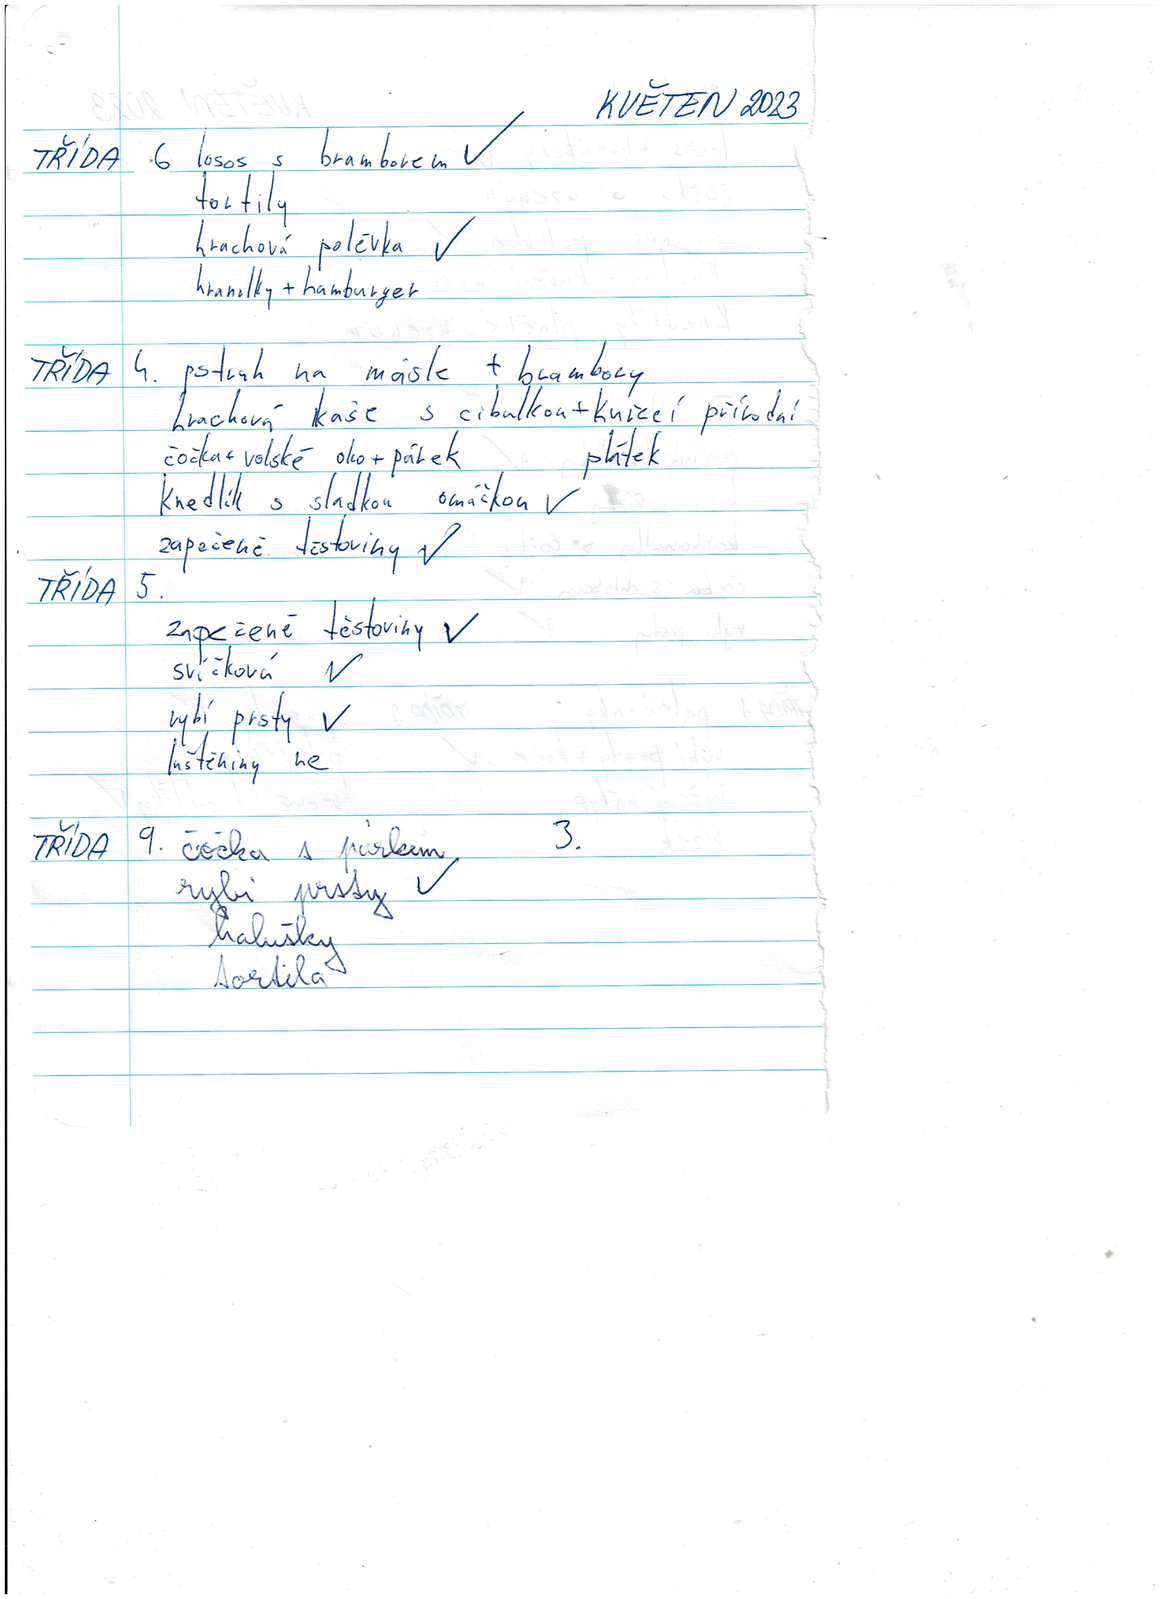 KVĚTEN 2023
TŘÍDA 6 losos s bramborem ✓
tortily
hrachová polévka ✓
hranolky + hamburger
TŘÍDA 4. pstruh na másle + brambory
hrachová kaše s cibulkou + kuřecí přírodní
čočka + volské oko + párek plátek
knedlík s sladkou omáčkou ✓
zapečené těstoviny ✓
TŘÍDA 5.
zapečené těstoviny ✓
svíčková ✓
rybí prsty ✓
luštěniny ne
TŘÍDA 9. čočka s párkem 3.
rybí prsty ✓
halušky
tortila